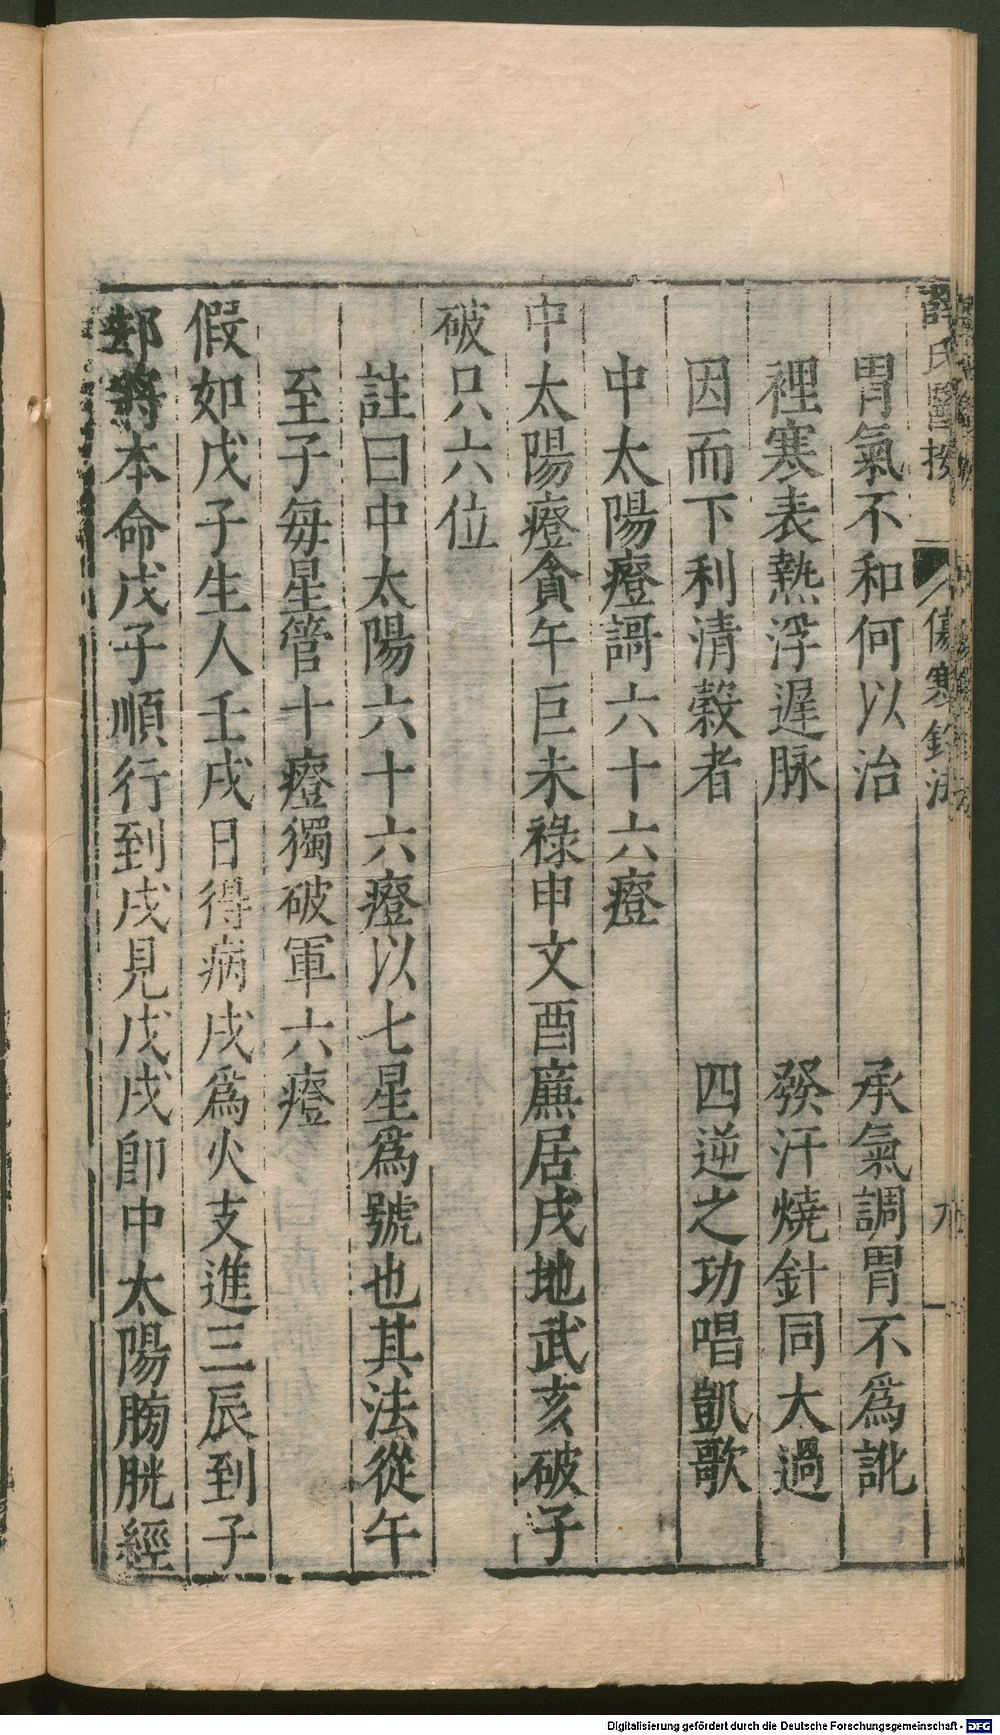 薛氏醫按 傷寒鈐法 九
胃氣不和何以治 承氣調胃不爲訛
裡寒表熱浮遲脉 發汗燒針同大過
因而下利清穀者 四逆之功唱凱歌
中太陽瘂謌六十六瘂
中太陽瘂貪午巨未祿申文酉廉居戌地武亥破子
破只六位
註曰中太陽六十六瘂以七星爲號也其法從午
至子每星管十瘂獨破軍六瘂
假如戊子生人壬戌日得病戌爲火支進三辰到子
却將本命戊子順行到戌見戊戌卽中太陽膀胱經
Digitalisierung gefördert durch die Deutsche Forschungsgemeinschaft - DFG